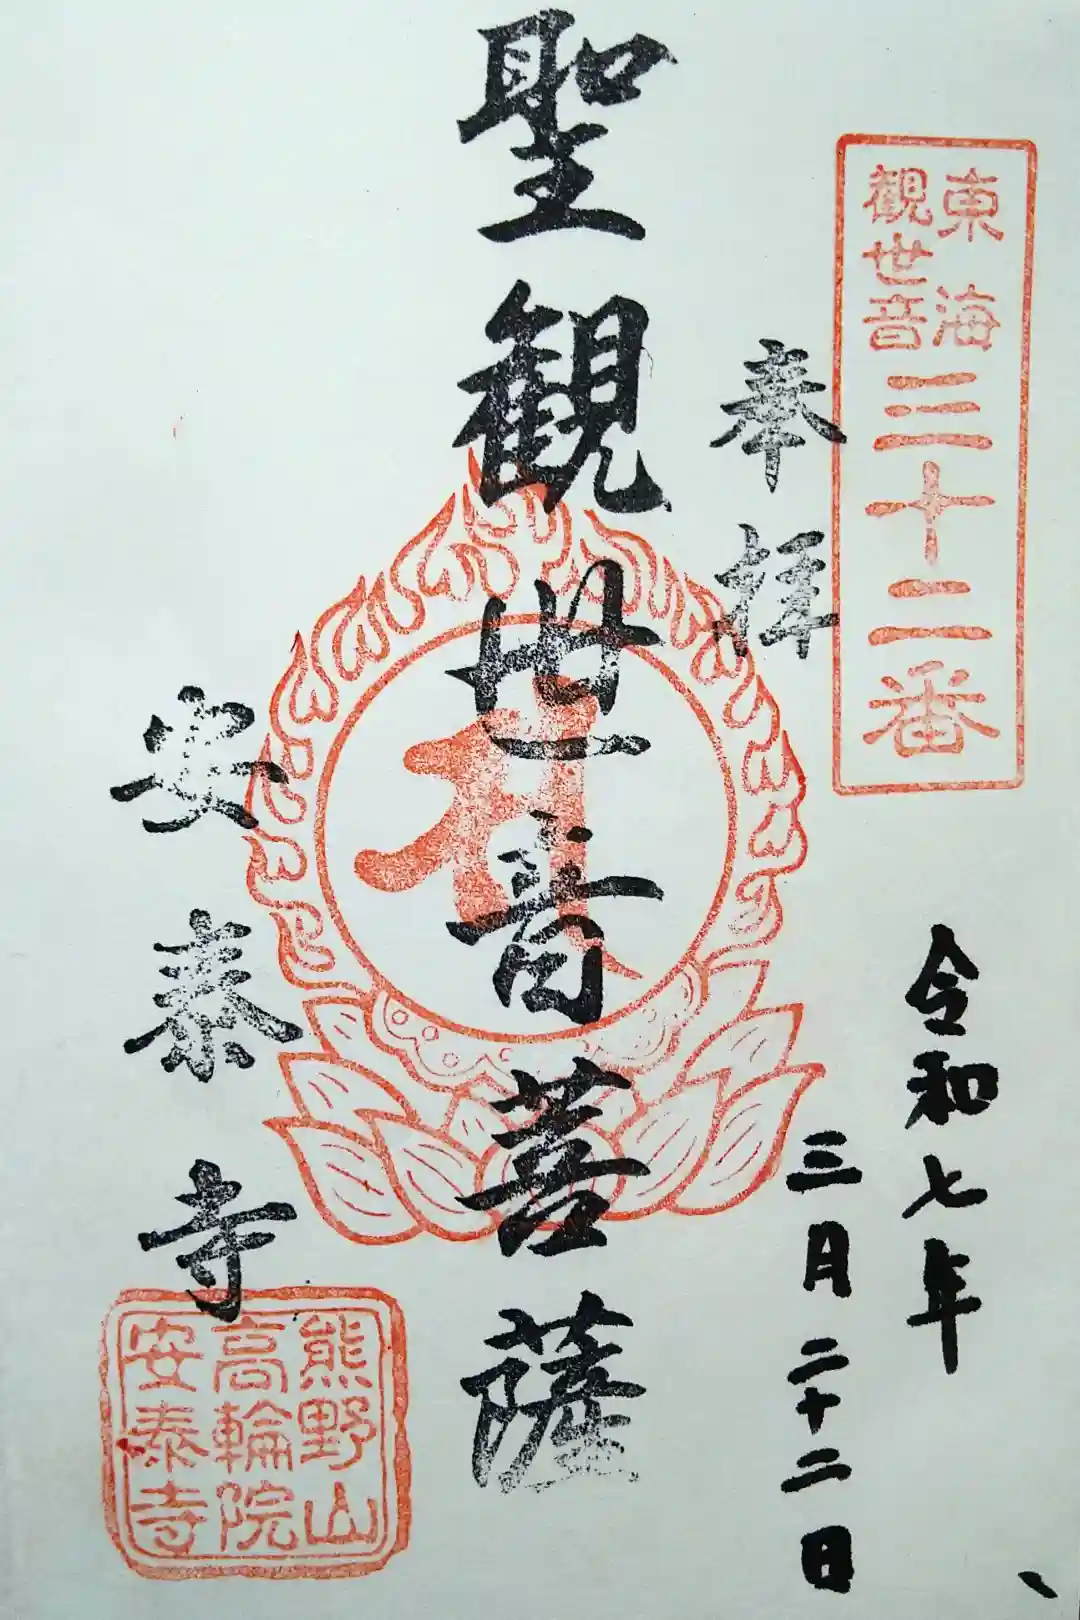 東海
観世音
三十二番
奉拝
聖観世音菩薩
安泰寺
令和七年
三月二十二日
熊野山
高輪院
安泰寺